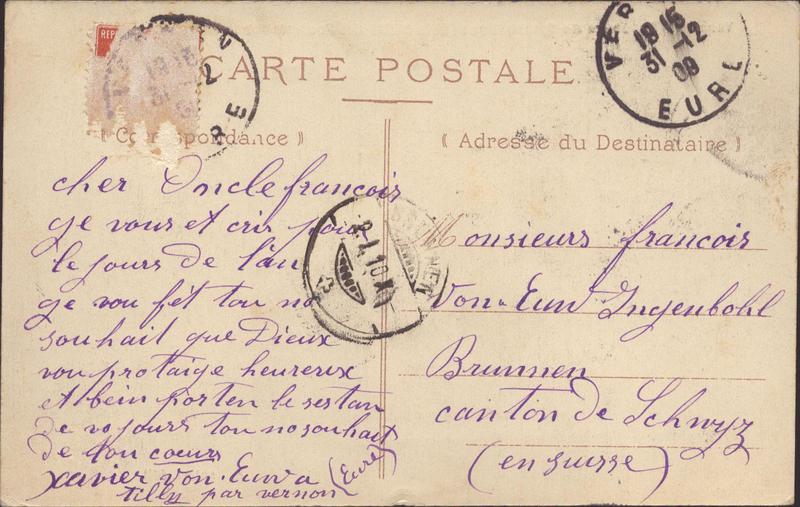 REP
CARTE POSTALE
VER
19 15
31 - 12
09
EURE
⟪ Correspondance ⟫
⟪ Adresse du Destinataire ⟫
cher Oncle francois
ge vous et cris pour
le jours de l'an
ge vou fêt tou no
souhait que Dieux
vou protaige heureux
et bein porten le restan
de vo jours tou no souhait
de tou coeurs
Xavier Von-Euw a (Eure)
tilly par vernon
BRUNNEN
2.1.10.X
Monsieurs francois
Von-Euw Ingenbohl
Brunnen
canton de Schwyz
(en suisse)